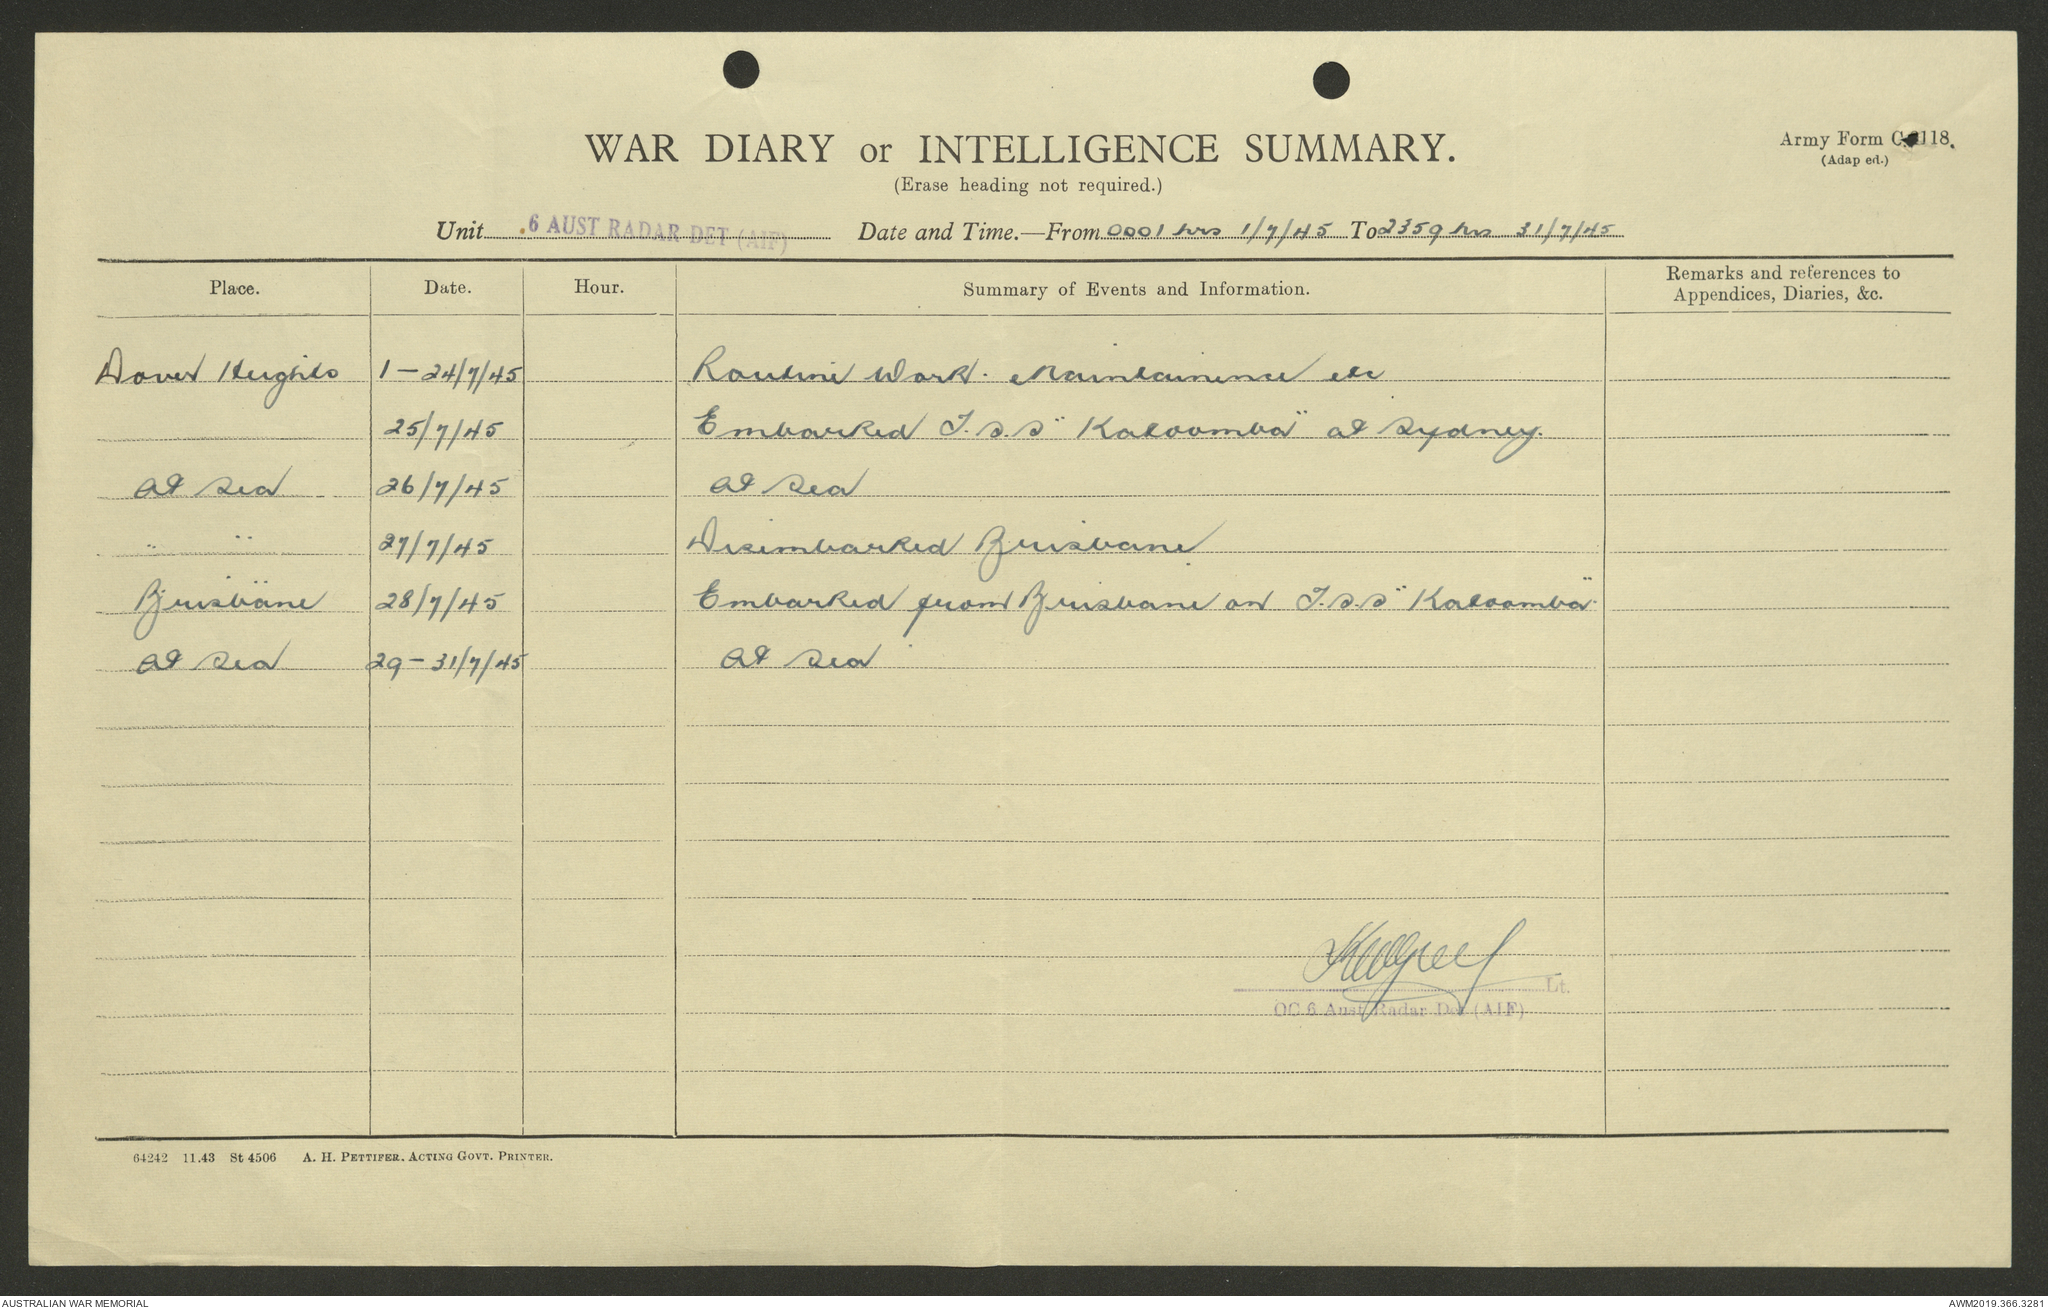 WAR DIARY or INTELLIGENCE SUMMARY.
Army Form C.2118.
(Erase heading not required.)
(Adap ed.)
Unit 6 AUST RADAR DET (AIF) Date and Time.—From 0001 hrs 1/7/45 To 2359 hrs 31/7/45
Place. Date. Hour. Summary of Events and Information. Remarks and references to Appendices, Diaries, &c.
Dover Heights 1-24/7/45 Routine Work. Maintainence etc
25/7/45 Embarked T.S.S "Katoomba" at Sydney.
At Sea 26/7/45 At Sea
" " 27/7/45 Disembarked Brisbane
Brisbane 28/7/45 Embarked from Brisbane on T.S.S "Katoomba"
At Sea 29-31/7/45 At Sea
Lt.
OC 6 Aust Radar Det (AIF)
64242 11.43 St 4506 A. H. PETTIFER, ACTING GOVT. PRINTER.
AUSTRALIAN WAR MEMORIAL AWM2019.366.3281